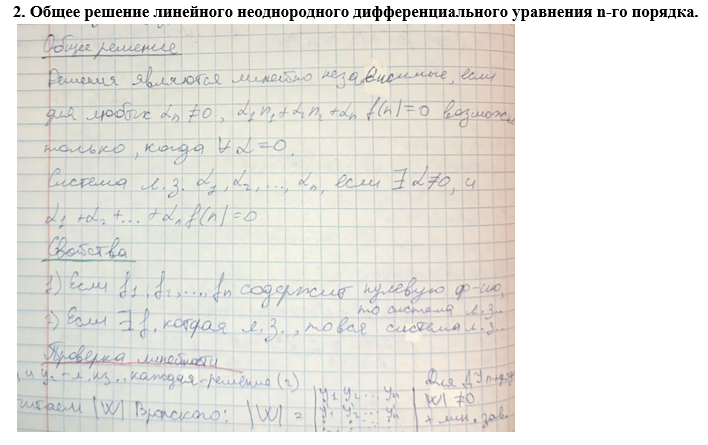 2. Общее решение линейного неоднородного дифференциального уравнения n-го порядка.
Общее решение
Решения являются линейно независимые, если
для любых αₙ ≠0, α₁ n₁+α₂n₂+αₙ f(n)=0 возмож
только, когда ∀ α=0.
Система л.з. α₁, α₂, ..., αₙ, если ∃ α≠0, и
α₁ +α₂+...+αₙf(n)=0
Свойства
1) Если f₁, f₂, ..., fₙ содержит нулевую ф-ию,
то система л.з.
2) Если ∃ f, которая л.з., то вся система л.з.
Проверка линейности
и y₂ - л.нз., каждая-решение (2)
Для ДУ
считаем |W| Вронского: |W| = |y₁ y₂ ... yₙ|
|W| ≠0
y₁ y₂ ... yₙ
+ лин. зав